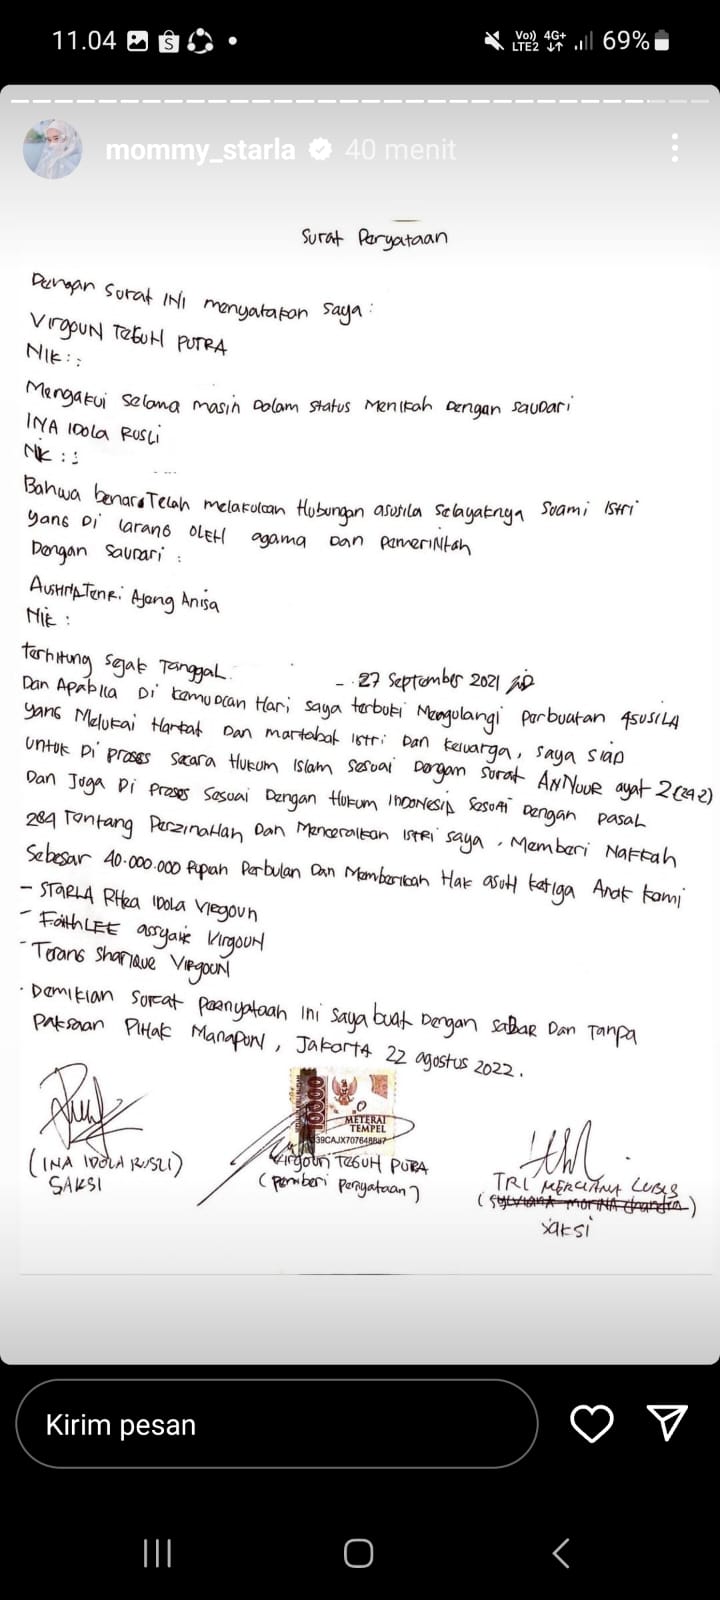 11.04
Vo)) LTE2 4G+ 69%
mommy_starla 40 menit
Surat Peryataan
Dengan Surat INI menyatakan saya :
VIRGOUN TEGUH PUTRA
NIK : :
Mengakui selama masih Dalam status Menikah Dengan sauDari
INA IDOLA RUSLI
NIK : :
Bahwa benar Telah melakukan Hubungan asusila selayaknya Suami Istri
yang Di larang OLEH agama Dan pemerintah
Dengan Saudari :
Tenri Ajeng Anisa
NIK :
terhitung sejak Tanggal - 27 September 2021
Dan Apabila Di kemudian Hari saya terbukti Mengulangi perbuatan asusila
yang Melukai Harkat Dan martabat istri Dan keluarga, saya siap
untuk Di proses secara Hukum Islam sesuai Dengan surat ANNUUR ayat 2 (24:2)
Dan Juga Di proses sesuai Dengan Hukum INDONESIA sesuai Dengan pasal
284 Tentang Perzinahan Dan Menceraikan istri saya, Memberi Nafkah
Sebesar 40.000.000 Rupiah Perbulan Dan Memberikan Hak asuh ketiga Anak kami
- STARLA RHea IDOLA VIRGOUN
- FaithLEE assyaik VIRGOUN
- Terang sharique VIRGOUN
. Demikian surat peernyataan ini saya buat Dengan saDar Dan Tanpa
Paksaan PIHAK ManapuN, Jakarta 22 agostus 2022.
10000
METERAI
TEMPEL
39CAJX707648887
(INA IDOLA RUSLI)
SAKSI
Virgoun TEGUH PUTRA
(pemberi peryataan)
TRI MERCIANA LUBIS
saksi
Kirim pesan